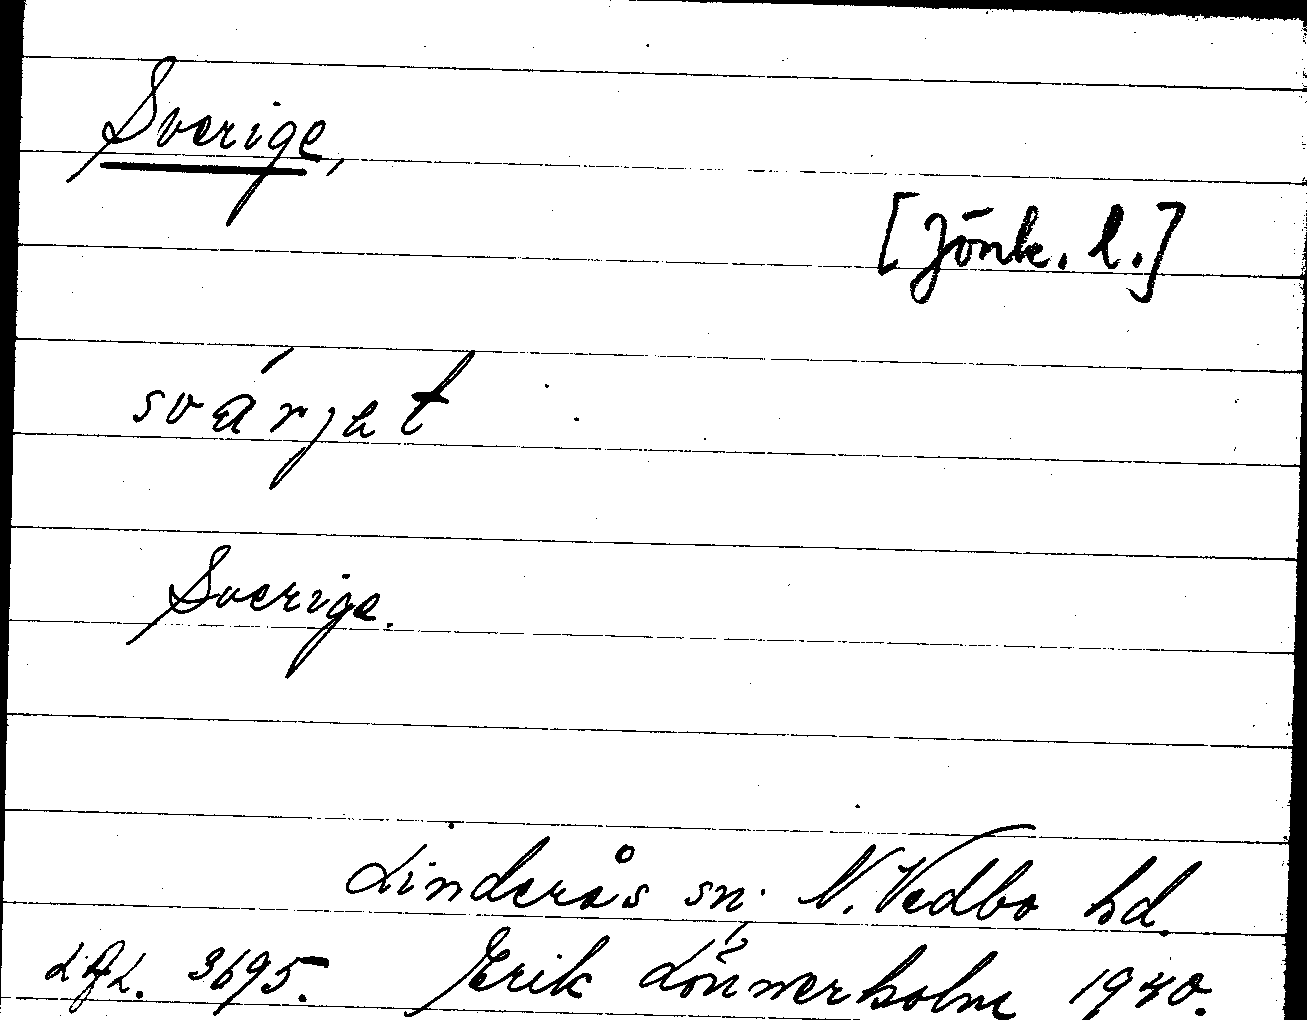 Sverige,
[Jönk. l.]
svárjet
Sverige.
Linderås sn. N. Vedbo hd.
3695. Erik Lönnerholm 1940.